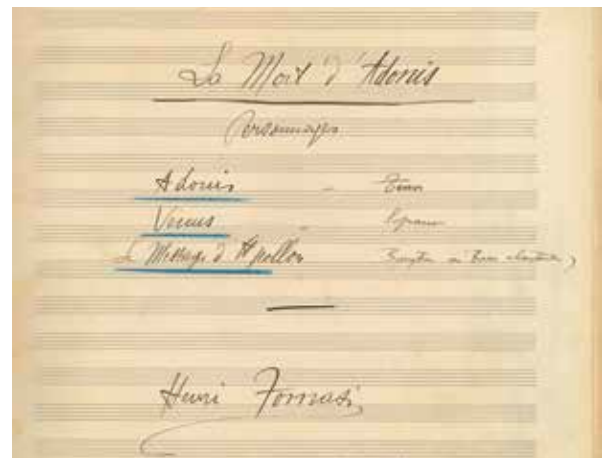 La Mort d'Adonis
Personnages
Adonis - Ténor
Vénus - Soprano
Le Message d'Apollon Baryton ou Basse chantante
Henri Tomasi